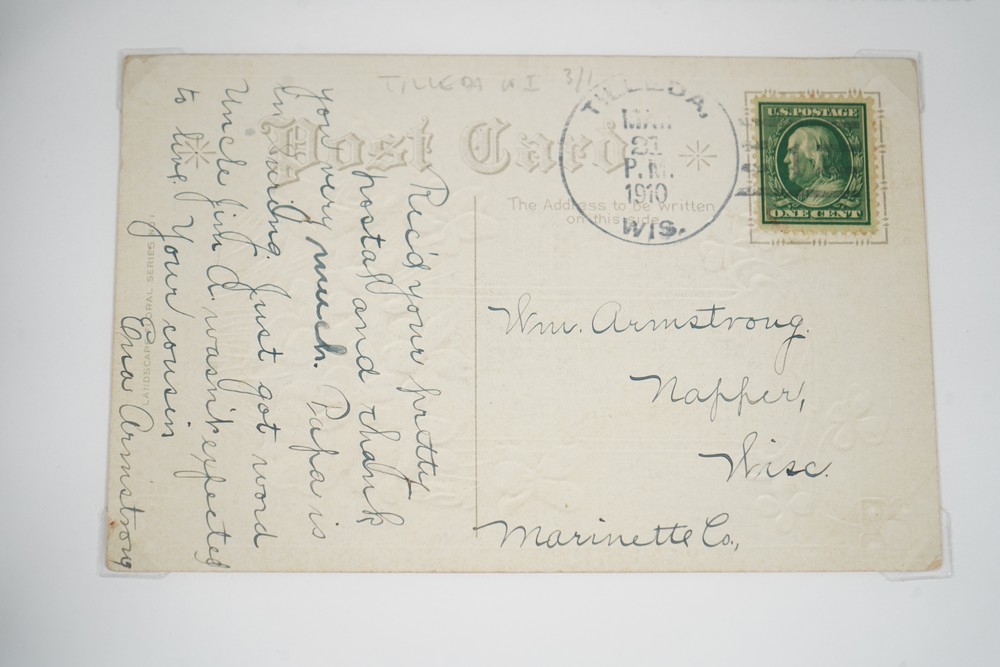 TILLEDA WI 3/1
Post Card
TILLEDA,
MAR
21
P.M.
1910
WIS.
U.S. POSTAGE
ONE CENT
The Address to be written
on this side
Rec'd your pretty
postal and thank
you very much. Papa is
in Just got word
Uncle Jim A. wasn't expected
to live. Your cousin
Ena Armstrong
Wm. Armstrong.
Napper,
Wisc.
Marinette Co.,
LANDSCAPE FLORAL SERIES